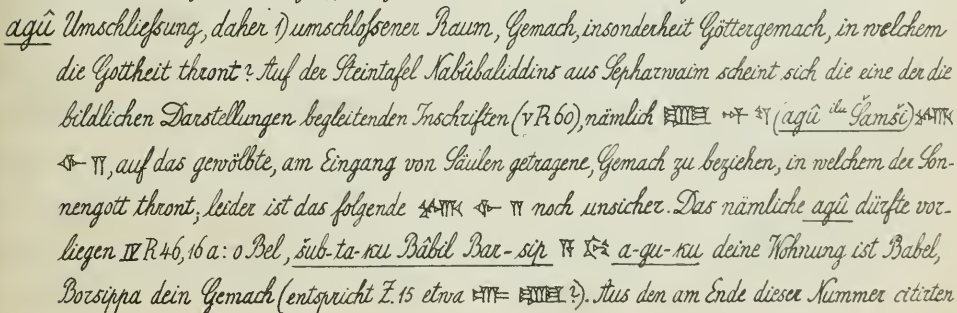 agû Umschließung, daher 1) umschloßener Raum, Gemach, insonderheit Göttergemach, in welchem
die Gottheit thront? Auf der Steintafel Nabûbaliddins aus Sepharwaim scheint sich die eine der die
bildlichen Darstellungen begleitenden Inschriften (v R 60), nämlich (agû ilu Šamši)
, auf das gewölbte, am Eingang von Säulen getragene, Gemach zu beziehen, in welchem der Son-
nengott thront; leider ist das folgende noch unsicher. Das nämliche agû dürfte vor-
liegen IV R 46, 16 a: o Bel, šub-ta-ku Bâbil Bar-sip a-gu-ku deine Wohnung ist Babel,
Borsippa dein Gemach (entspricht Z. 15 etwa ?). Aus den am Ende dieser Nummer citirten